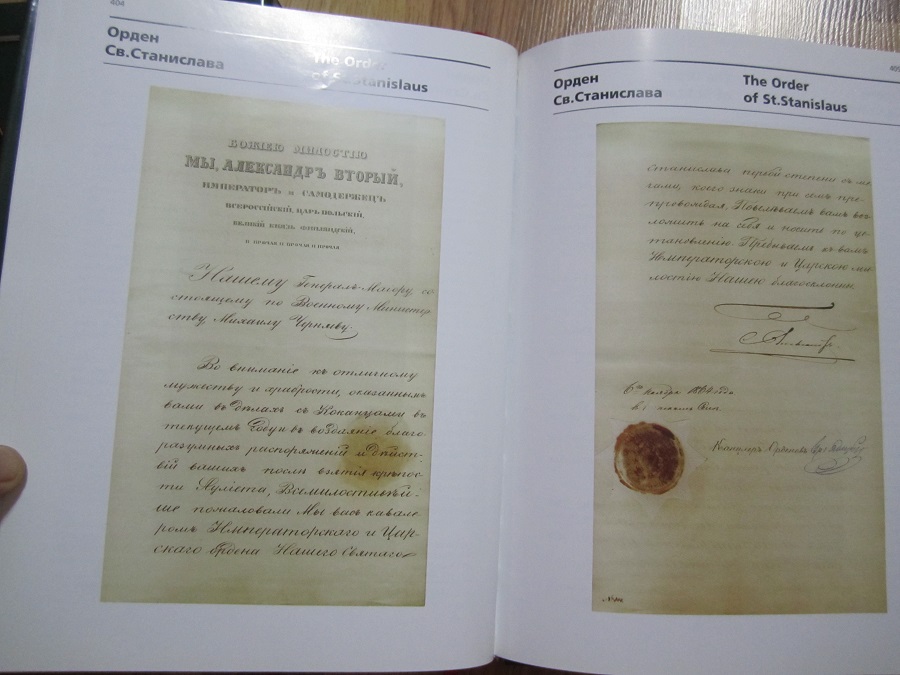 404
Орден
Св.Станислава
The Order
of St.Stanislaus
БОЖІЕЮ МИЛОСТІЮ
МЫ, АЛЕКСАНДРЪ ВТОРЫЙ,
ИМПЕРАТОРЪ и САМОДЕРЖЕЦЪ
ВСЕРОССІЙСКІЙ, ЦАРЬ ПОЛЬСКІЙ,
ВЕЛИКІЙ КНЯЗЬ ФИНЛЯНДСКІЙ,
И ПРОЧАЯ И ПРОЧАЯ И ПРОЧАЯ
Нашему Генералъ-Маіору, со
стоящему по Военному Министер
ству Михаилу Черняеву.
Во вниманіе къ отличному
мужеству и храбрости, оказаннымъ
вами въ дѣлахъ съ Коканцами въ
текущемъ Году и въ воздаяніе благо-
разумныхъ распоряженій и дѣйст-
вій вашихъ послѣ взятія крѣпос-
ти Ауліета, Всемилостивѣй-
ше пожаловали Мы васъ кавале-
ромъ Императорскаго и Цар-
скаго ордена Нашего Святаго
405
Орден
Св.Станислава
The Order
of St.Stanislaus
Станислава первой степени съ ме-
чами, коего знаки при семъ пре-
провождая, Повелѣваемъ вамъ воз-
ложить на себя и носить по ус-
тановленію. Пребываемъ къ вамъ
Императорскою и Царскою ми-
лостію Нашею благосклонны.
ноября 1864 года
Канцлеръ Орденовъ